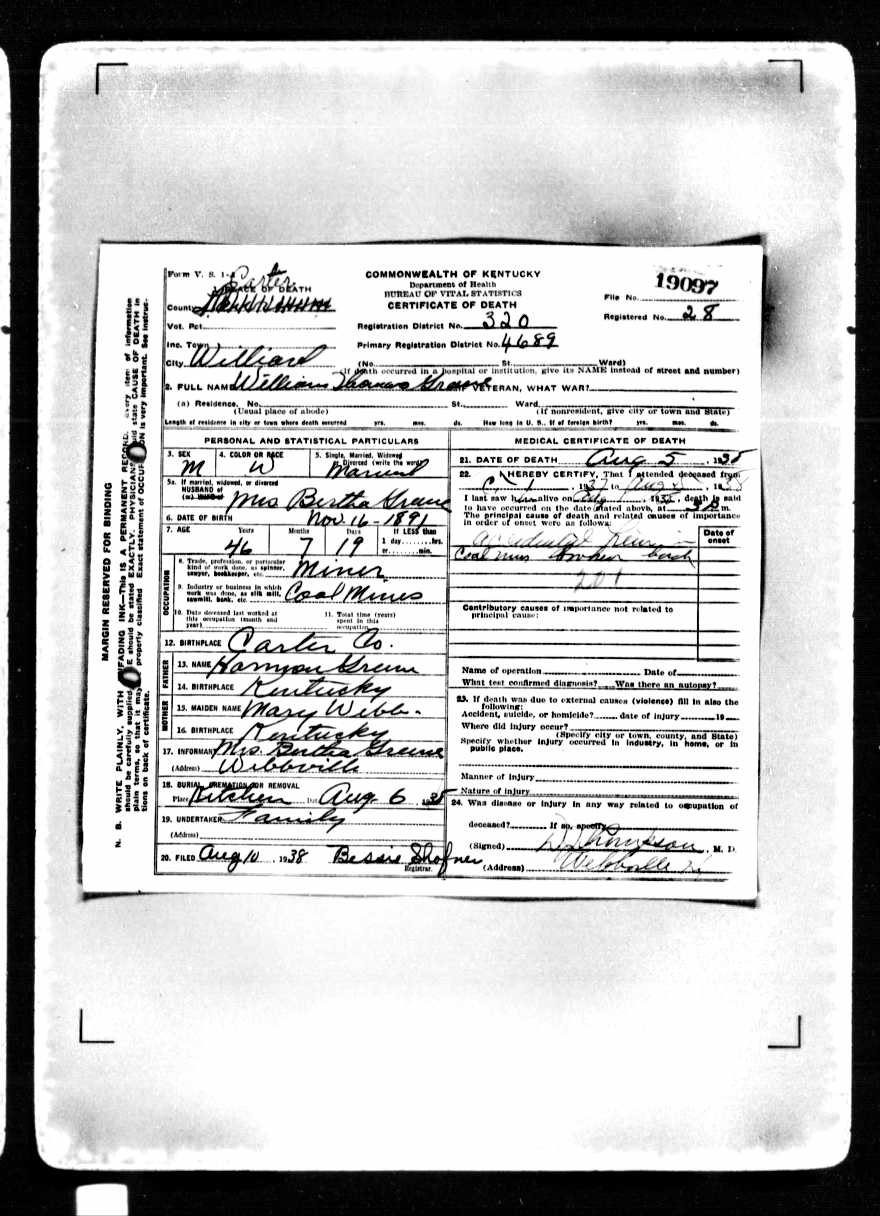 Form V. S. 1-A
Carter
PLACE OF DEATH
County
Vot. Pct.
Inc. Town
City Williard
COMMONWEALTH OF KENTUCKY
Department of Health
BUREAU OF VITAL STATISTICS
CERTIFICATE OF DEATH
Registration District No. 320
Primary Registration District No. 4689
19097
File No.
Registered No. 28
(No. St. Ward)
(If death occurred in a hospital or institution, give its NAME instead of street and number)
2. FULL NAME William Thomas Greene IF VETERAN, WHAT WAR?
(a) Residence. No. St. Ward
(Usual place of abode) (If nonresident, give city or town and State)
Length of residence in city or town where death occurred yrs. mos. ds. How long in U. S., if of foreign birth? yrs. mos. ds.
PERSONAL AND STATISTICAL PARTICULARS
3. SEX M
4. COLOR OR RACE W
5. Single, Married, Widowed or Divorced (write the word) Married
5a. If married, widowed, or divorced
HUSBAND of
(or) WIFE of Mrs Bertha Greene
6. DATE OF BIRTH Nov. 16 - 1891
7. AGE Years Months Days If LESS than
46 7 19 1 day hrs.
or min.
OCCUPATION
8. Trade, profession, or particular
kind of work done, as spinner,
sawyer, bookkeeper, etc. Miner
9. Industry or business in which
work was done, as silk mill,
sawmill, bank, etc. Coal Mines
10. Date deceased last worked at
this occupation (month and
year)
11. Total time (years)
spent in this
occupation
12. BIRTHPLACE Carter Co.
FATHER
13. NAME Greene
14. BIRTHPLACE Kentucky
MOTHER
15. MAIDEN NAME Mary Webb
16. BIRTHPLACE Kentucky
17. INFORMANT Mrs. Bertha Greene
(Address) Webbville
18. BURIAL, CREMATION OR REMOVAL
Place Kitchen Date Aug 6 1938
19. UNDERTAKER Family
(Address)
20. FILED Aug 10, 1938 Bessie Shofner
Registrar.
MEDICAL CERTIFICATE OF DEATH
21. DATE OF DEATH Aug 5, 1938
22. I HEREBY CERTIFY, That I attended deceased from
I last saw h alive on , death is said
to have occurred on the date stated above, at m.
The principal cause of death and related causes of importance
in order of onset were as follows:
Date of
onset
accidental
Coal broken back
201
Contributory causes of importance not related to
principal cause:
Name of operation Date of
What test confirmed diagnosis? Was there an autopsy?
23. If death was due to external causes (violence) fill in also the
following:
Accident, suicide, or homicide? date of injury 19
Where did injury occur?
(Specify city or town, county, and State)
Specify whether injury occurred in industry, in home, or in
public place.
Manner of injury
Nature of injury
24. Was disease or injury in any way related to occupation of
deceased? If so, specify
(Signed) Thompson, M. D.
(Address) Webbville Ky
MARGIN RESERVED FOR BINDING